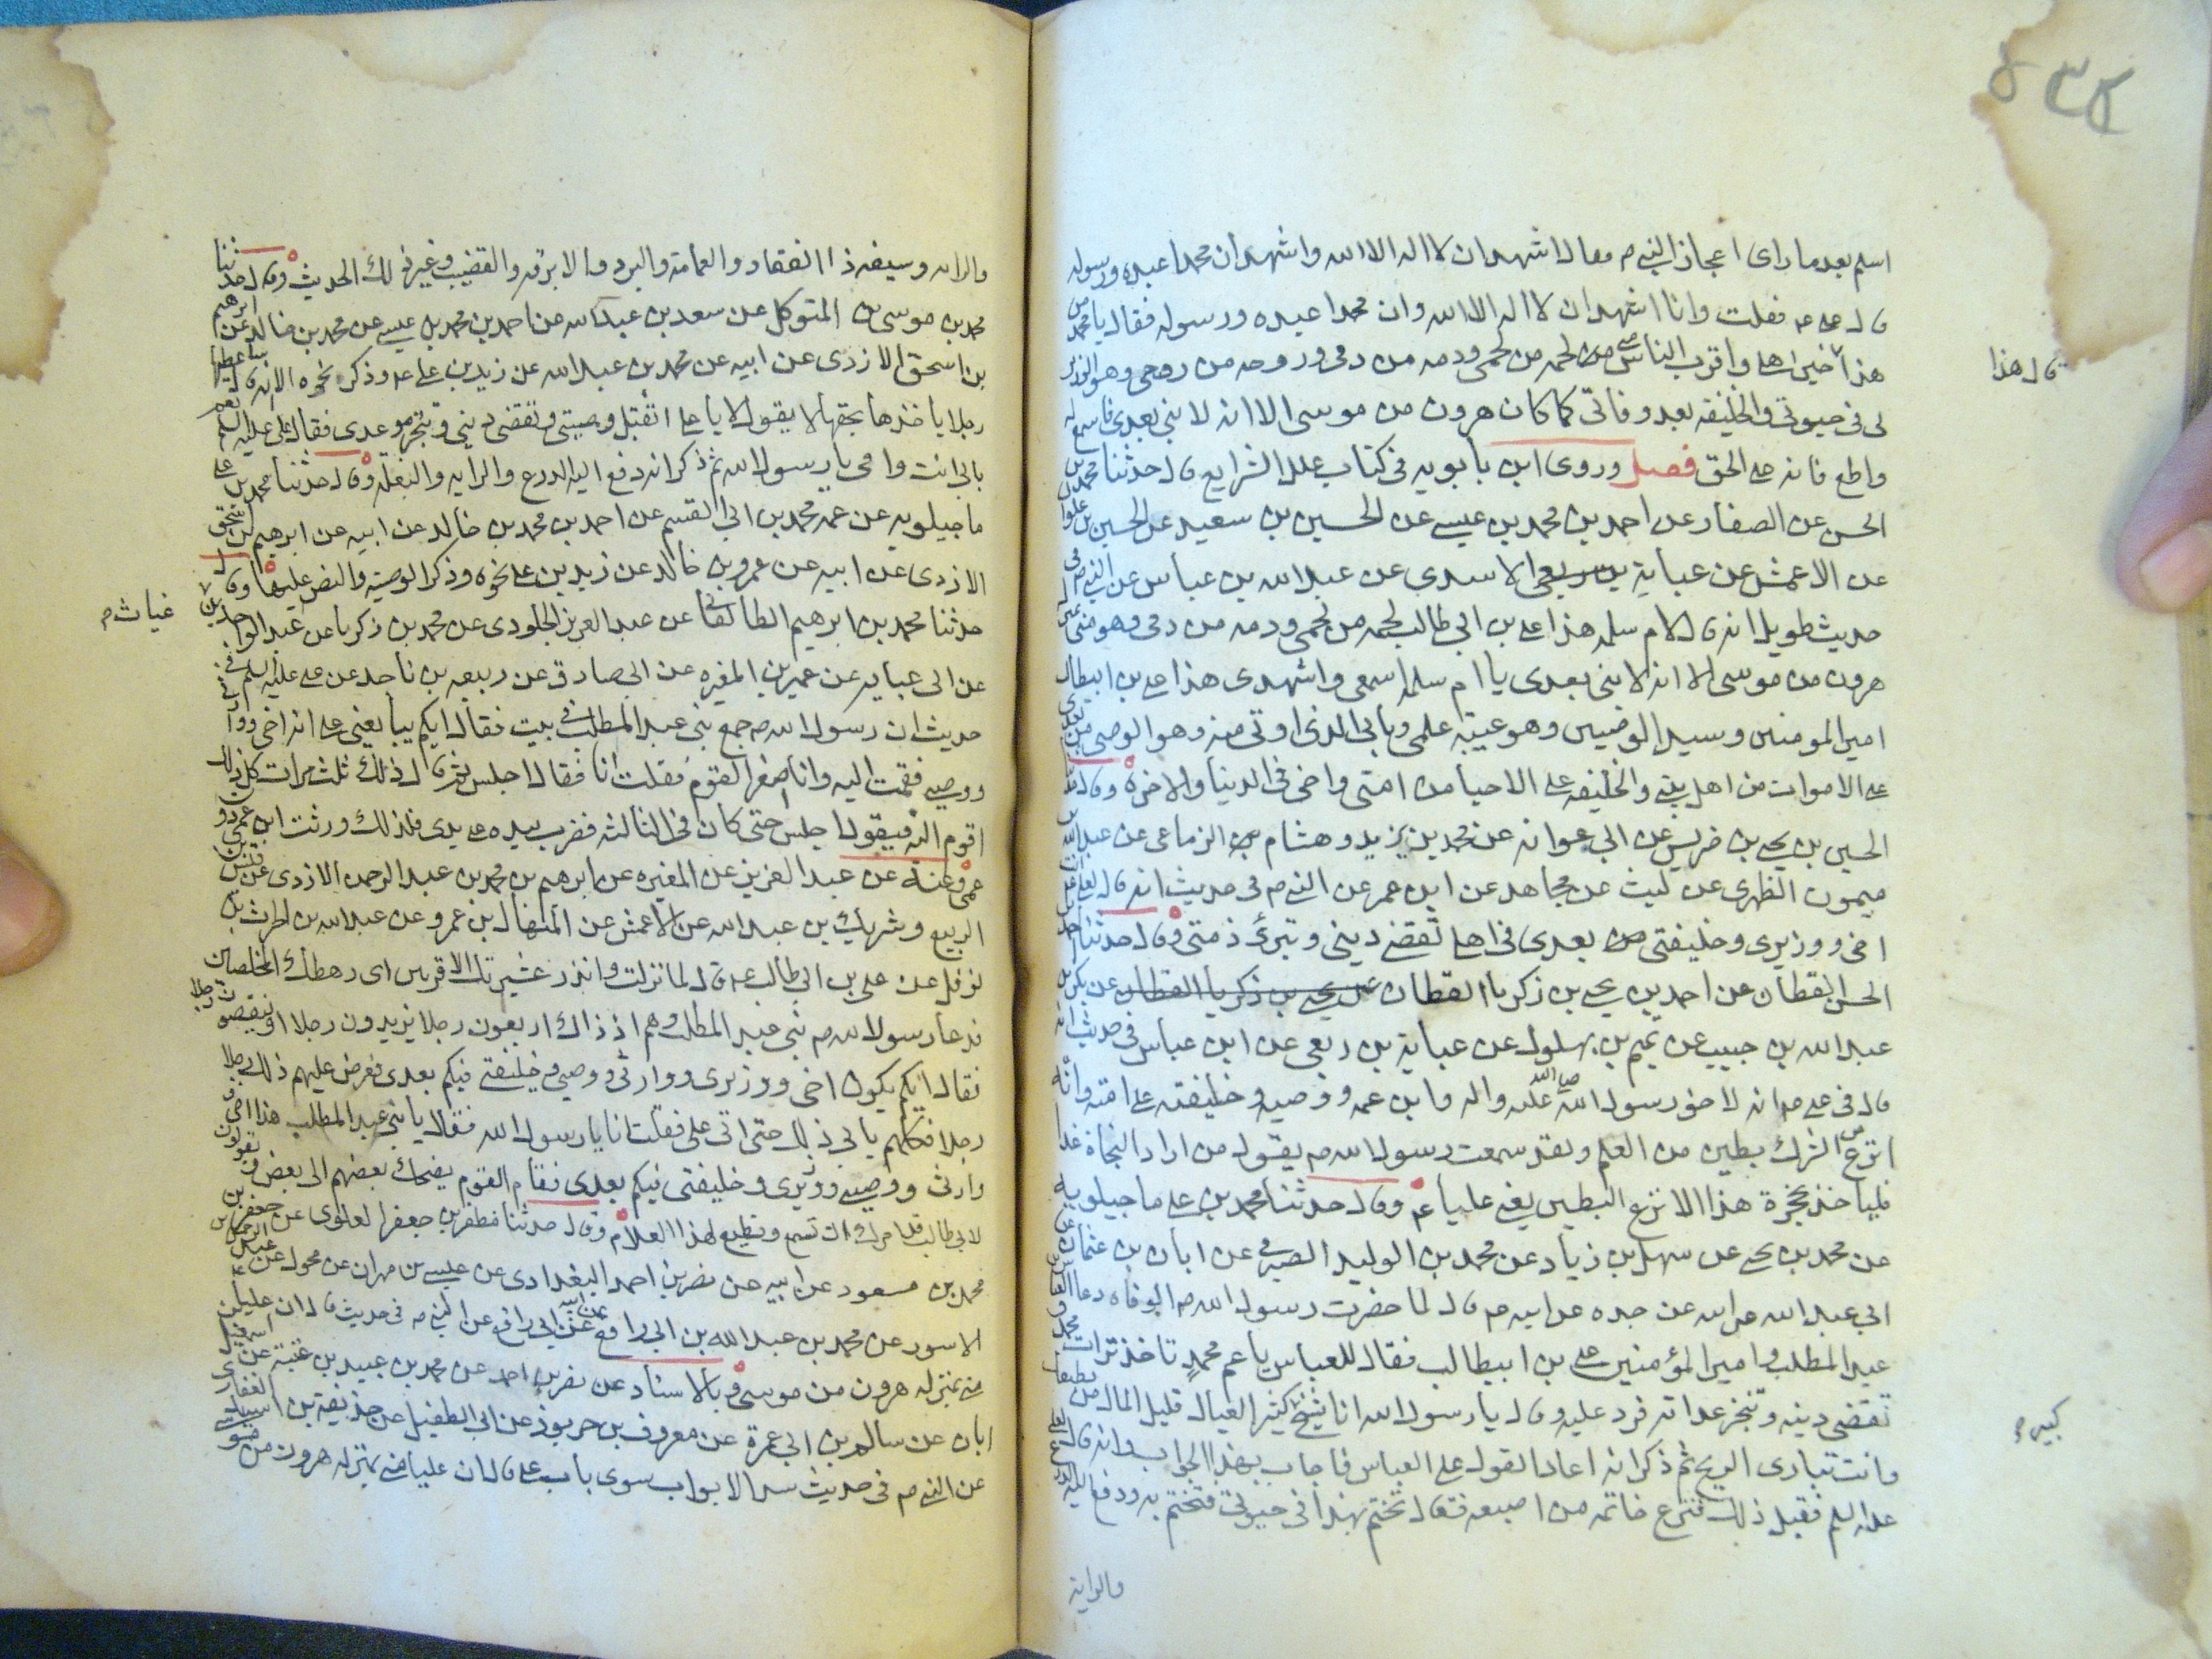 اسلم بعد ما رای اعجاز النبی ص فقال اشهد ان لا اله الا الله واشهد ان محمدا عبده ورسوله
قال علی ع فقلت وانا اشهد ان لا اله الا الله وان محمدا عبده ورسوله فقال یا محمد من
هذا فقال هذا خیر اهلی واقرب الناس منی لحمه من لحمی ودمه من دمی وروحه من روحی وهو الوزیر
لی فی حیوتی والخلیفة بعد وفاتی کما کان هرون من موسی الا انه لا نبی بعدی فاسمع له
واطع فانه علی الحق فصل وروی ابن بابویه فی کتاب علل الشرایع قال حدثنا محمد بن
الحسن عن الصفار عن احمد بن محمد بن عیسی عن الحسین بن سعید عن الحسین بن علوان
عن الاعمش عن عبایة بن ربعی الاسدی عن عبد الله بن عباس عن النبی ص فی
حدیث طویل انه قال لام سلمه هذا علی بن ابی طالب لحمه من لحمی ودمه من دمی وهو منی بمنزلة
هرون من موسی الا انه لا نبی بعدی یا ام سلمه اسمعی واشهدی هذا علی بن ابیطالب
امیر المومنین وسید الوصیین وهو عیبة علمی وبابی الذی اوتی منه وهو الوصی من بعدی
علی الاموات من اهل بیتی والخلیفه علی الاحیا من امتی واخی فی الدنیا والاخرة وقال حدثنا
الحسین بن یحیی بن ضریس عن ابی عوانه عن محمد بن یزید وهشام الزماعی عن عبد الله بن
میمون الطهری عن لیث عن مجاهد عن ابن عمر عن النبی ص فی حدیث انه قال لعلی انت
اخی ووزیری وخلیفتی من بعدی فی اهلی تقضی دینی وتبرئ ذمتی وقال حدثنا احمد بن
الحسن القطان عن احمد بن یحیی بن زکریا القطان عن یحیی بن زکریا القطان عن بکر بن
عبد الله بن حبیب عن تمیم بن بهلول عن عبایة بن ربعی عن ابن عباس فی حدیث انه
قال فی علی ع انه لاخو رسول الله صلی الله علیه واله وابن عمه ووصیه وخلیفته علی امته وانه
انزع من الشرک بطین من العلم ولقد سمعت رسول الله ص یقول من اراد النجاة غدا
فلیاخذ بحجزة هذا الانزع البطین یعنی علیا ع وقال حدثنا محمد بن علی ماجیلویه
عن محمد بن یحیی عن سهل بن زیاد عن محمد بن الولید الصیرفی عن ابان بن عثمان عن
ابی عبد الله عن ابیه عن جده عن ابیه ع قال لما حضرت رسول الله ص الوفاه دعا العباس بن
عبد المطلب وامیر المؤمنین علی بن ابیطالب فقال للعباس یا عم محمد تاخذ تراث محمد و
تقضی دینه وتنجز عداته فرد علیه وقال یا رسول الله انا شیخ کبیر کثیر العیال قلیل المال من یطیقک
وانت تباری الریح ثم ذکر انه اعاد القول علی العباس فاجاب بهذا الجواب وانه قال
علیه السلم فقبل ذلک فنزع خاتمه من اصبعه فقال تختم بهذا فی حیوتی فتختم به ودفع الیه الدرع
والرایة
والرایه وسیفه ذا الفقار والعمامة والبرد والابرقه والقضیب وغیر ذلک الحدیث وقال حدثنا
محمد بن موسی بن المتوکل عن سعد بن عبد الله عن احمد بن محمد بن عیسی عن محمد بن خالد عن ابرهیم
بن اسحق الازدی عن ابیه عن محمد بن عبد الله عن زید بن علی ع وذکر نحوه الا انه قال ساعطیها
رجلا یاخذها بحقها لا یقول کما یا علی اتقبل وصیتی وتقضی دینی وتنجز موعدی فقال علی علیه السلم نعم
بابی انت وامی یا رسول الله ثم ذکر انه دفع الیه الدرع والرایه والبغله وقال حدثنا محمد بن علی
ماجیلویه عن عمه محمد بن ابی القسم عن احمد بن محمد بن خالد عن ابیه عن ابرهیم بن اسحق
الازدی عن ابیه عن عمرو بن خالد عن زید بن علی نحوه وذکر الوصیة والنص علیها وقال
حدثنا محمد بن ابرهیم الطالقانی عن عبد العزیز الجلودی عن محمد بن زکریا عن عبد الواحد بن غیاث
عن ابی عبایه عن عمیر بن المغیره عن ابی صادق عن ربیعه بن ناجد عن علی علیه السلم فی
حدیث ان رسول الله ص جمع بنی عبد المطلب فی بیت فقال ایکم یبایعنی علی انه اخی ووارثی
ووصیی فقمت الیه وانا اصغر القوم فقلت انا فقال اجلس ثم قال ذلک ثلث مرات کل ذلک
اقوم الیه فیقول اجلس حتی کان فی الثالثه فضرب بیده علی یدی فلذلک ورثت ابن عمی دون
عمی وعنه عن عبد العزیز عن المغیره عن ابرهیم بن محمد بن عبد الرحمن الازدی عن قیس بن
الربیع وشریک بن عبد الله عن الاعمش عن المنهال بن عمرو عن عبد الله بن الحرث بن
نوفل عن علی بن ابی طالب ع قال لما نزلت وانذر عشیرتک الاقربین ای رهطک المخلصین
فدعا رسول الله ص بنی عبد المطلب وهم اذ ذاک اربعون رجلا یزیدون رجلا او ینقصون رجلا
فقال ایکم یکون اخی ووزیری ووارثی ووصیی وخلیفتی فیکم بعدی فعرض علیهم ذلک رجلا
رجلا فکلهم یابی ذلک حتی اتی علی فقلت انا یا رسول الله فقال یا بنی عبد المطلب هذا اخی و
وارثی ووصیی ووزیری وخلیفتی فیکم بعدی فقام القوم یضحک بعضهم الی بعض ویقولون
لابی طالب قد امرک ان تسمع وتطیع لهذا الغلام وقال حدثنا مظفر بن جعفر العلوی عن جعفر بن
محمد بن مسعود عن ابیه عن نصر بن احمد البغدادی عن عیسی بن مهران عن مخول عن عبد الرحمن بن
الاسود عن محمد بن عبد الله بن ابی رافع عن ابیه عن ابی رافع عن النبی ص فی حدیث قال ان علیا
منی بمنزله هرون من موسی وبالاسناد عن نصر بن احمد عن محمد بن عبید بن عتبة عن اسمعیل
ابان عن سالم بن ابی عمرة عن معروف بن خربوذ عن ابی الطفیل عن حذیفة بن اسید الغفاری
عن النبی ص فی حدیث سد الابواب سوی باب علی قال ان علیا منی بمنزله هرون من موسی
غیاث م
قال هذا
کبیر